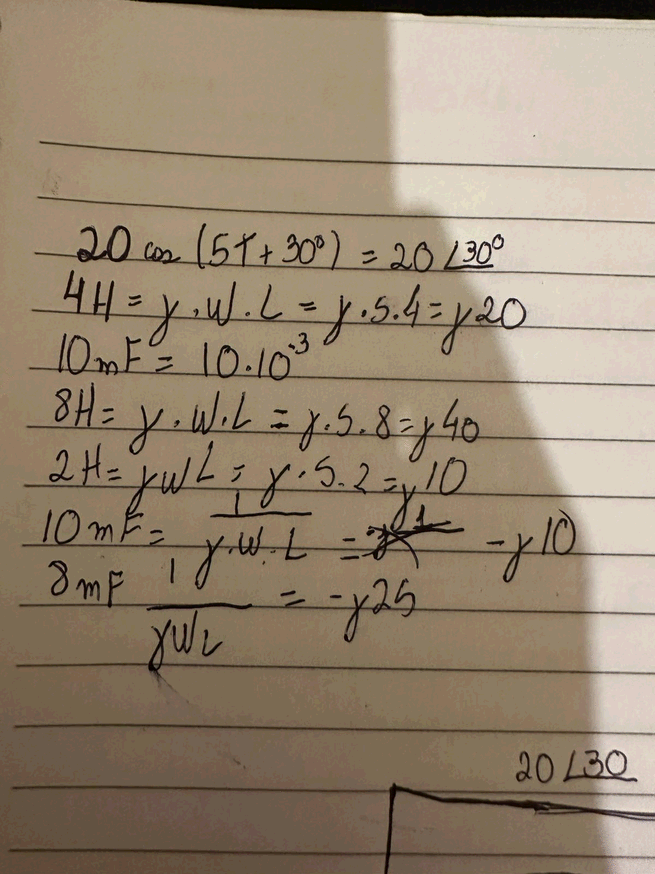 20 cos (5T + 30°) = 20 ∠30°
4H = j . W . L = j . 5 . 4 = j 20
10mF = 10.10⁻³
8H = j . W . L = j . 5 . 8 = j 40
2H = j W L = j . 5 . 2 = j 10
10mF = 1/j.W.L = -j 10
8mF 1/jWL = -j 25
20 ∠30